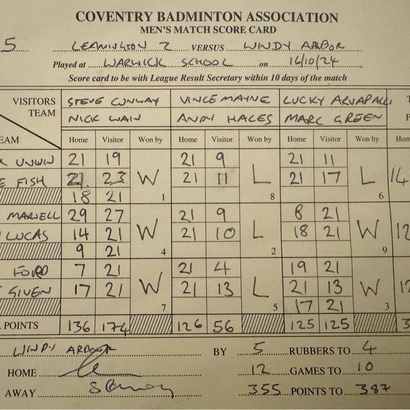 COVENTRY BADMINTON ASSOCIATION
MEN'S MATCH SCORE CARD
5 LEAMINGTON 2 VERSUS WINDY ARBOR
Played at WARWICK SCHOOL on 16/10/24
Score card to be with League Result Secretary within 10 days of the match
VISITORS TEAM STEVE CONWAY VINCE MAYNE LUCKY
NICK WAIN ANDY HALES MARC GREEN
TEAM Home Visitor Won by Home Visitor Won by Home Visitor Won by
UNWIN 21 19 W 21 9 L 21 11 L 14
FISH 21 23 21 11 21 17
18 21 1 8 6
MAXWELL 29 27 W 21 9 L 8 21 W 12
LUCAS 14 21 21 10 18 21
9 21 4 2 9
FORD 7 21 W 21 4 L 19 21 W
GIVEN 17 21 21 13 21 13
7 5 17 21 3
POINTS 136 174 126 56 125 125
WINDY ARBOR BY 5 RUBBERS TO 4
HOME 12 GAMES TO 10
AWAY 355 POINTS TO 387